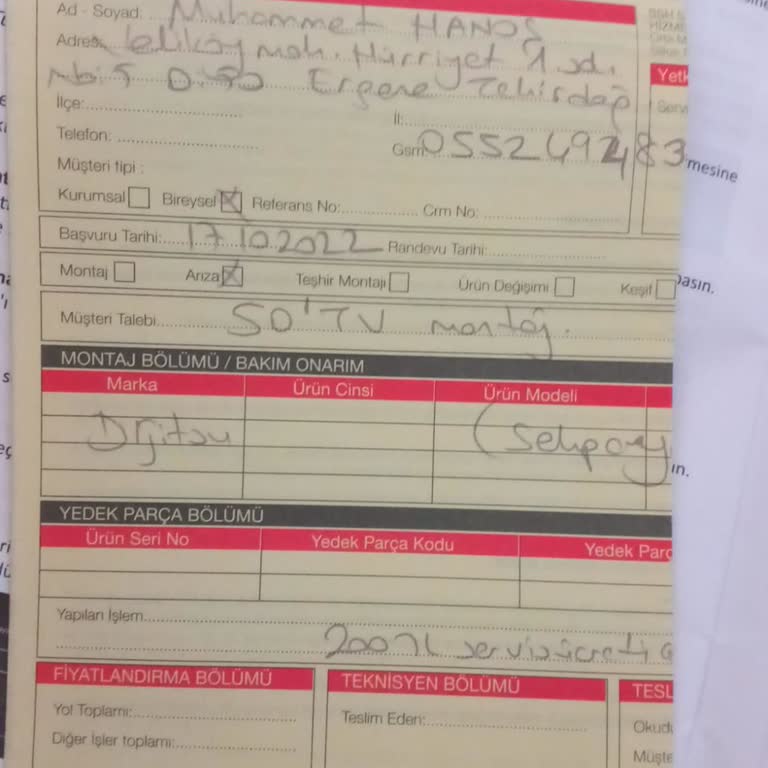 Ad - Soyad: Muhammet HANOS
Adres: mah. Hürriyet 1 sd.
no: 5 D. Ergene Tekirdağ
İlçe: İl:
Telefon: Gsm 0552492483
Müşteri tipi :
Kurumsal Bireysel X Referans No: Crm No:
Başvuru Tarihi: 17.10.2022 Randevu Tarihi:
Montaj Arıza X Teşhir Montajı Ürün Değişimi Keşif
Müşteri Talebi 50' TV montaj.
MONTAJ BÖLÜMÜ / BAKIM ONARIM
Marka Ürün Cinsi Ürün Modeli
Dijitsu (Sehpa
YEDEK PARÇA BÖLÜMÜ
Ürün Seri No Yedek Parça Kodu Yedek Parç
Yapılan İşlem
200 TL servis ücreti
FİYATLANDIRMA BÖLÜMÜ TEKNİSYEN BÖLÜMÜ TESL
Yol Toplamı: Teslim Eden: Okudu
Diğer İşler toplamı: Müşte
Yetk
Serv
mesine
basın.
ın.